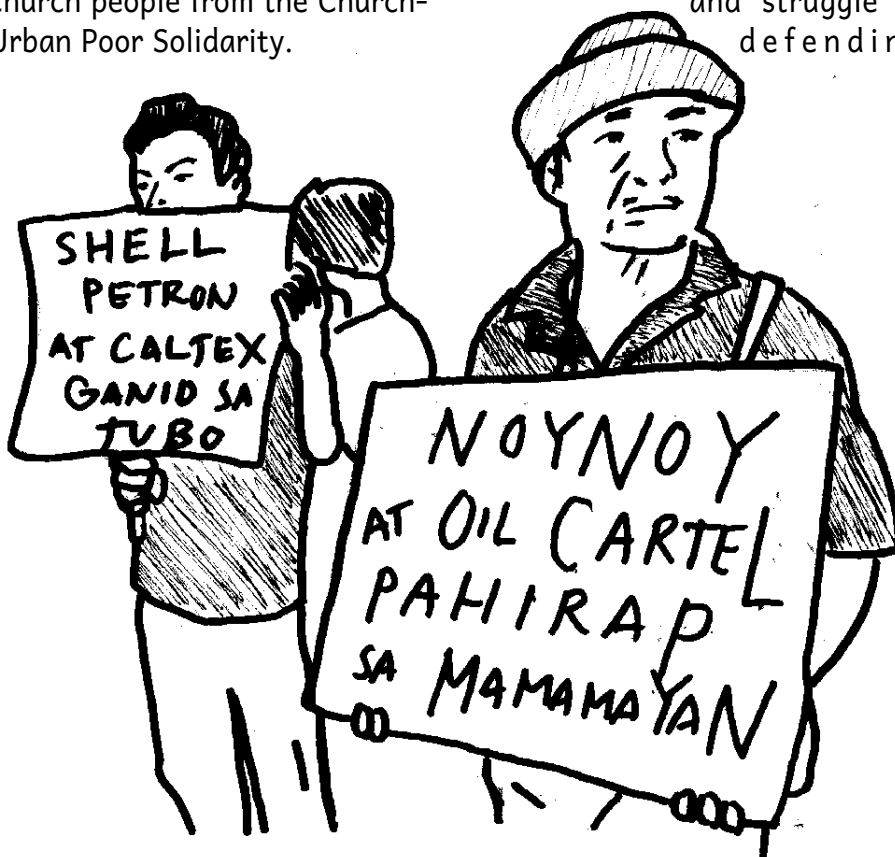 church people from the Church-
Urban Poor Solidarity.
and struggle
defendin
SHELL
PETRON
AT CALTEX
GANID SA
TUBO
NOYNOY
AT OIL CARTEL
PAHIRAP
SA MAMAMAYAN